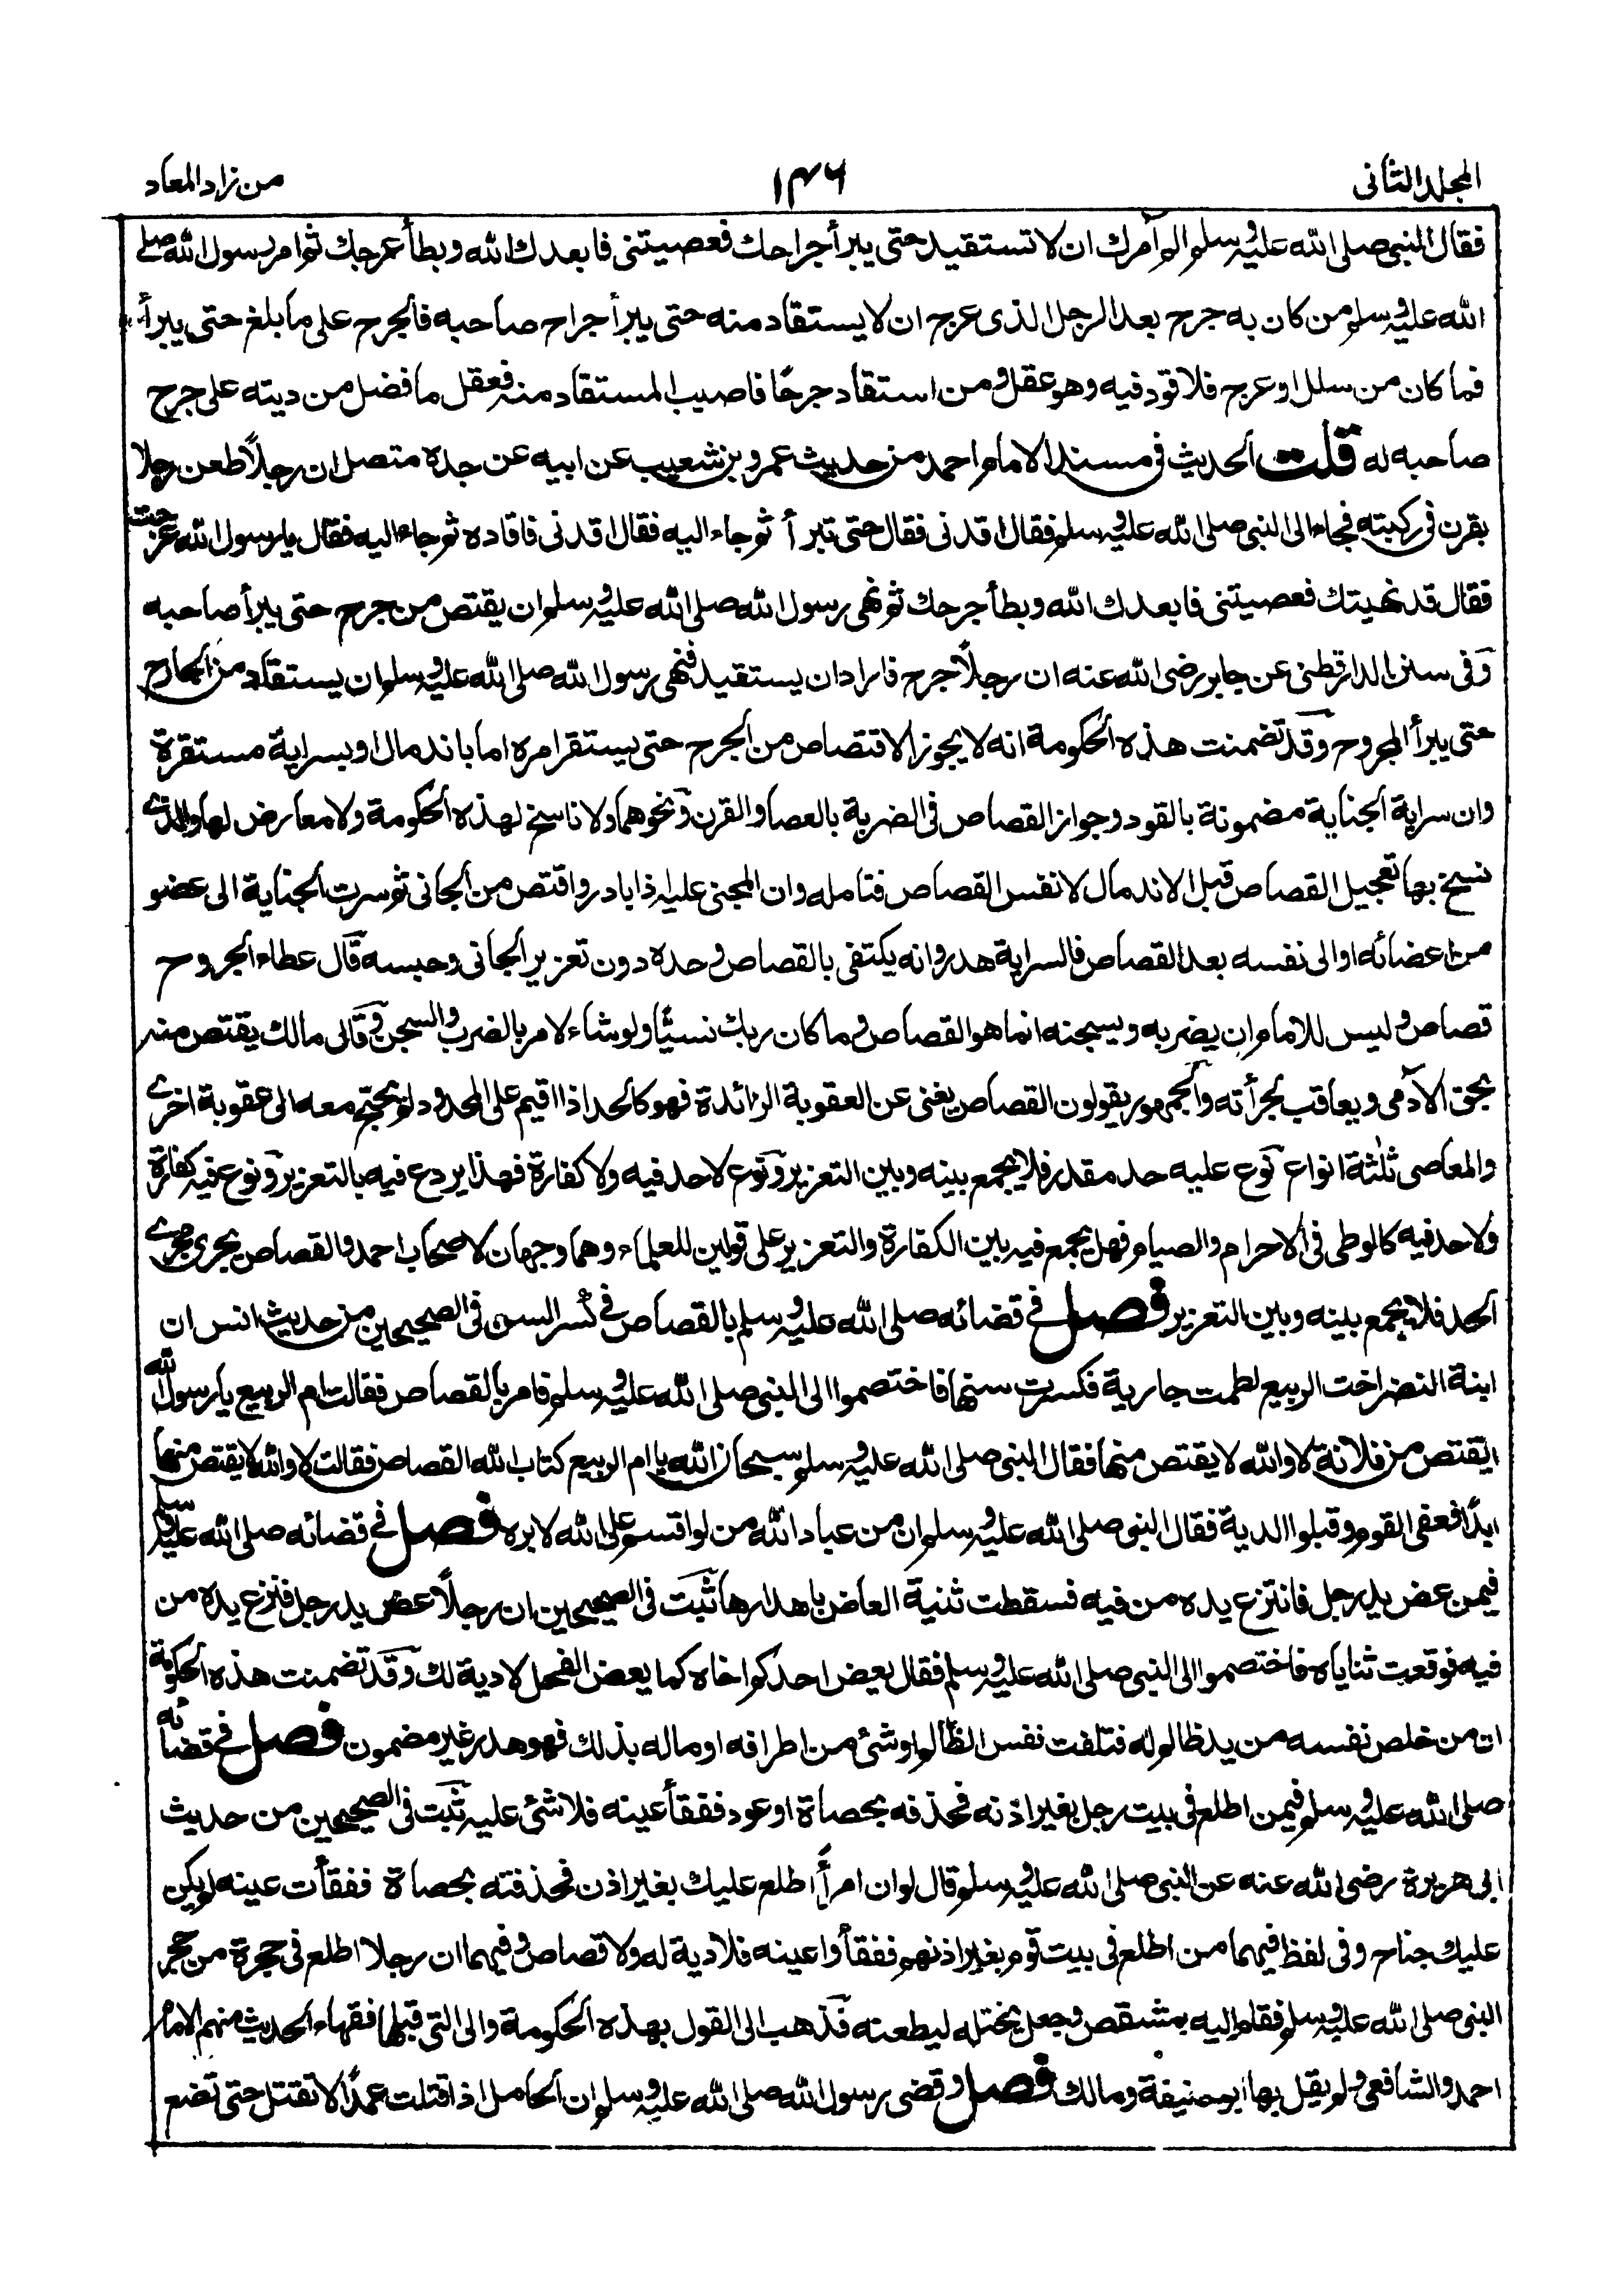 المجلد الثانى ١٣٦ من زاد المعاد
فقال النبى صلى الله عليه وسلم الم آمرك ان لا تستقيد حتى يبرأ جراحك فعصيتنى فابعدك الله وبطأ عرجك ثم امر رسول الله صلى
الله عليه وسلم من كان به جرح بعد الرجل الذى عرج ان لا يستقاد منه حتى يبرأ جراح صاحبه فالجرح على ما بلغ حتى يبرأ
فما كان من سلل او عرج فلا قود فيه وهو عقل ومن استقاد جرحًا فاصيب المستقاد منه فعقل ما فضل من ديته على جرح
صاحبه له قلت الحديث فى مسند الامام احمد من حديث عمرو بن شعيب عن ابيه عن جده متصل ان رجلاً طعن رجلا
بقرن فى ركبته فجاء الى النبى صلى الله عليه وسلم فقال اقدنى فقال حتى تبرأ ثم جاء اليه فقال اقدنى فاقاده ثم جاء اليه فقال يا رسول الله عرجت
فقال قد نهيتك فعصيتنى فابعدك الله وبطأ جرحك ثم نهى رسول الله صلى الله عليه وسلم ان يقتص من جرح حتى يبرأ صاحبه
وفى سنن الدارقطنى عن جابر رضى الله عنه ان رجلاً جرح فاراد ان يستقيد فنهى رسول الله صلى الله عليه وسلم ان يستقاد من الجارح
حتى يبرأ المجروح وقد تضمنت هذه الحكومة انه لا يجوز الاقتصاص من الجرح حتى يستقر امره اما باندمال او بسراية مستقرة
وان سراية الجناية مضمونة بالقود وجواز القصاص فى الضربة بالعصا والقرن ونحوهما ولا ناسخ لهذه الحكومة ولا معارض لها والذى
نسخ بها تعجيل القصاص قبل الاندمال لا نفس القصاص فتامله وان المجنى عليه اذا بادر واقتص من الجانى ثم سرت الجناية الى عضو
من اعضائه او الى نفسه بعد القصاص فالسراية هدر وانه يكتفى بالقصاص وحده دون تعزير الجانى وحبسه قال عطاء الجروح
قصاص وليس للامام ان يضربه ويسجنه انما هو القصاص وما كان ربك نسيًّا ولو شاء لامر بالضرب والسجن وقال مالك يقتص منه
بحق الآدمى ويعاقب بجرأته والجمهور يقولون القصاص يغنى عن العقوبة الزائدة فهو كالحد اذا اقيم على المحدود لم يحتج معه الى عقوبة اخرى
والمعاصى ثلثة انواع نوع عليه حد مقدر فلا يجمع بينه وبين التعزير ونوع لا حد فيه ولا كفارة فهذا يردع فيه بالتعزير ونوع فيه كفارة
ولا حد فيه كالوطى فى الاحرام والصيام فهل يجمع فيه بين الكفارة والتعزير على قولين للعلماء وهما وجهان لاصحاب احمد والقصاص يجرى مجرى
الحد فلا يجمع بينه وبين التعزير فصل فى قضائه صلى الله عليه وسلم بالقصاص فى كسر السن فى الصحيحين من حديث انس ان
ابنة النضر اخت الربيع لطمت جارية فكسرت سنها فاختصموا الى النبى صلى الله عليه وسلم فامر بالقصاص فقالت ام الربيع يا رسول الله
ايقتص من فلانة لا والله لا يقتص منها فقال النبى صلى الله عليه وسلم سبحان الله يا ام الربيع كتاب الله القصاص فقالت لا والله لا يقتص منها
ابدًا فعفى القوم وقبلوا الدية فقال النبى صلى الله عليه وسلم ان من عباد الله من لو اقسم على الله لابره فصل فى قضائه صلى الله عليه وسلم
فيمن عض يد رجل فانتزع يده من فيه فسقطت ثنية العاض باهدارها ثبت فى الصحيحين ان رجلاً عض يد رجل فنزع يده من
فيه فوقعت ثناياه فاختصموا الى النبى صلى الله عليه وسلم فقال يعض احدكم اخاه كما يعض الفحل لا دية لك وقد تضمنت هذه الحكومة
ان من خلص نفسه من يد ظالم له فتلفت نفس الظالم او شئ من اطرافه او ماله بذلك فهو هدر غير مضمون فصل فى قضائه
صلى الله عليه وسلم فيمن اطلع فى بيت رجل بغير اذنه فحذفه بحصاة او عود ففقأ عينه فلا شئ عليه ثبت فى الصحيحين من حديث
ابى هريرة رضى الله عنه عن النبى صلى الله عليه وسلم قال لو ان امرأ اطلع عليك بغير اذن فحذفته بحصاة ففقأت عينه لم يكن
عليك جناح وفى لفظ فيهما من اطلع فى بيت قوم بغير اذنهم ففقأوا عينه فلا دية له ولا قصاص وفيهما ان رجلا اطلع فى حجرة من حجر
النبى صلى الله عليه وسلم فقام اليه بمشقص وجعل يختله ليطعنه فذهب الى القول بهذه الحكومة والى التى قبلها فقهاء الحديث منهم الامام
احمد والشافعى ولم يقل بها ابو حنيفة ومالك فصل وقضى رسول الله صلى الله عليه وسلم ان الحامل اذا قتلت عمدًا لا تقتل حتى تضع